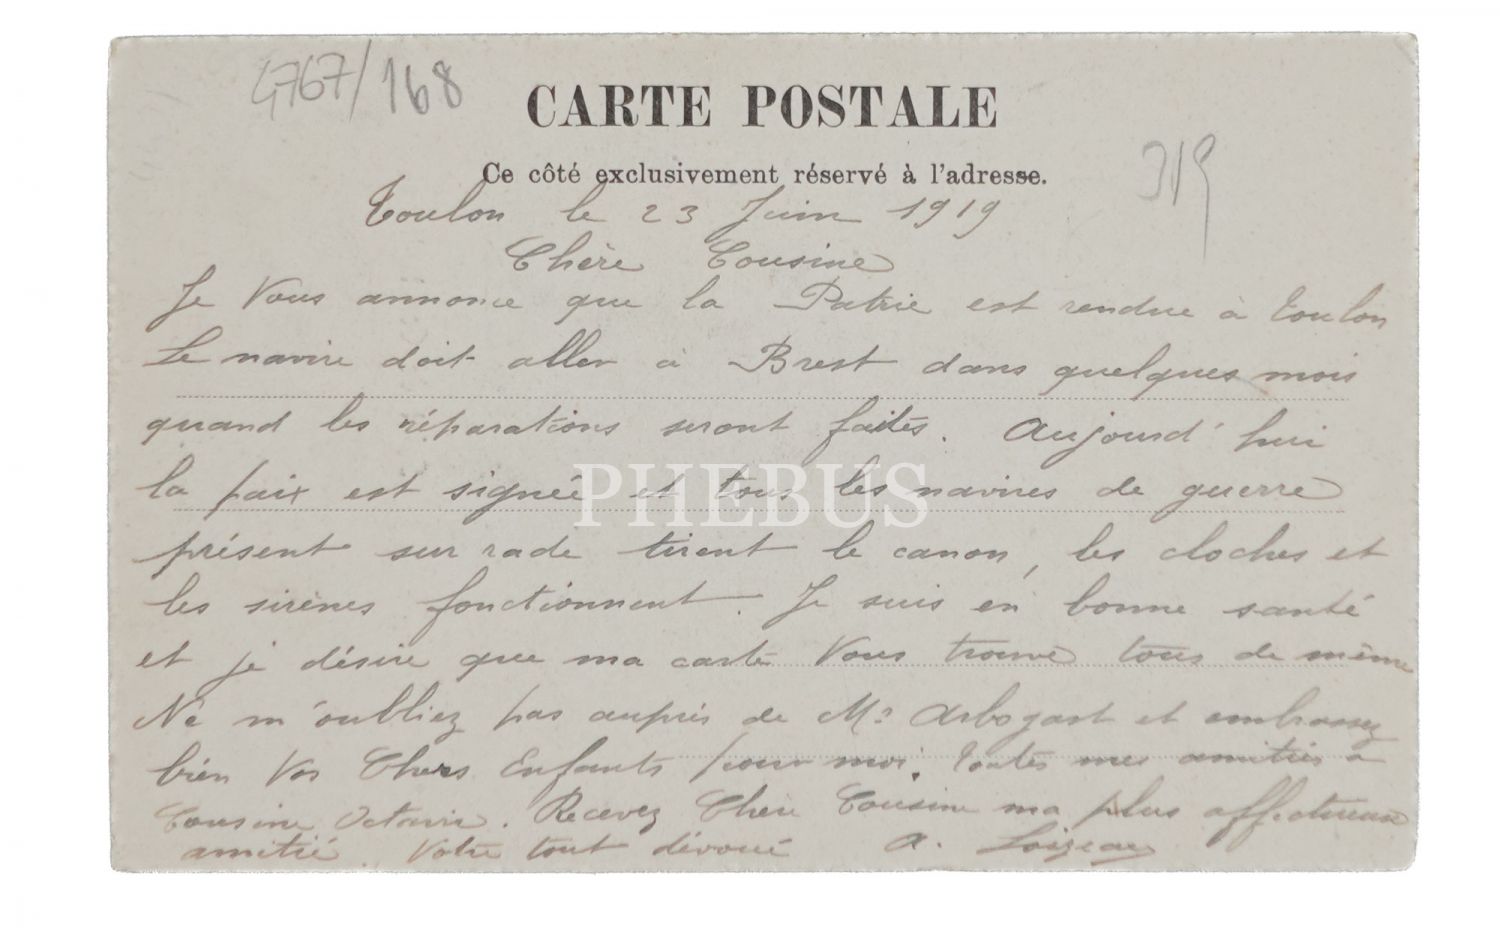 4767/168
CARTE POSTALE
319
Ce côté exclusivement réservé à l'adresse.
Toulon le 23 Juin 1919
Chère Cousine
Je Vous annonce que la Patrie est rendue à Toulon
Le navire doit aller à Brest dans quelques mois
quand les réparations seront faites. Aujourd'hui
la paix est signée et tous les navires de guerre
PHEBUS
présent sur rade tirent le canon, les cloches et
les sirènes fonctionnent. Je suis en bonne santé
et je désire que ma carte Vous trouve tous de même
Ne m'oubliez pas auprès de Mr Arbogast et embrassez
bien Vos Chers Enfants pour moi. Toutes mes amitiés à
Cousine Octavie. Recevez Chère Cousine ma plus affectueuse
amitié. Votre tout dévoué A. Loizeau